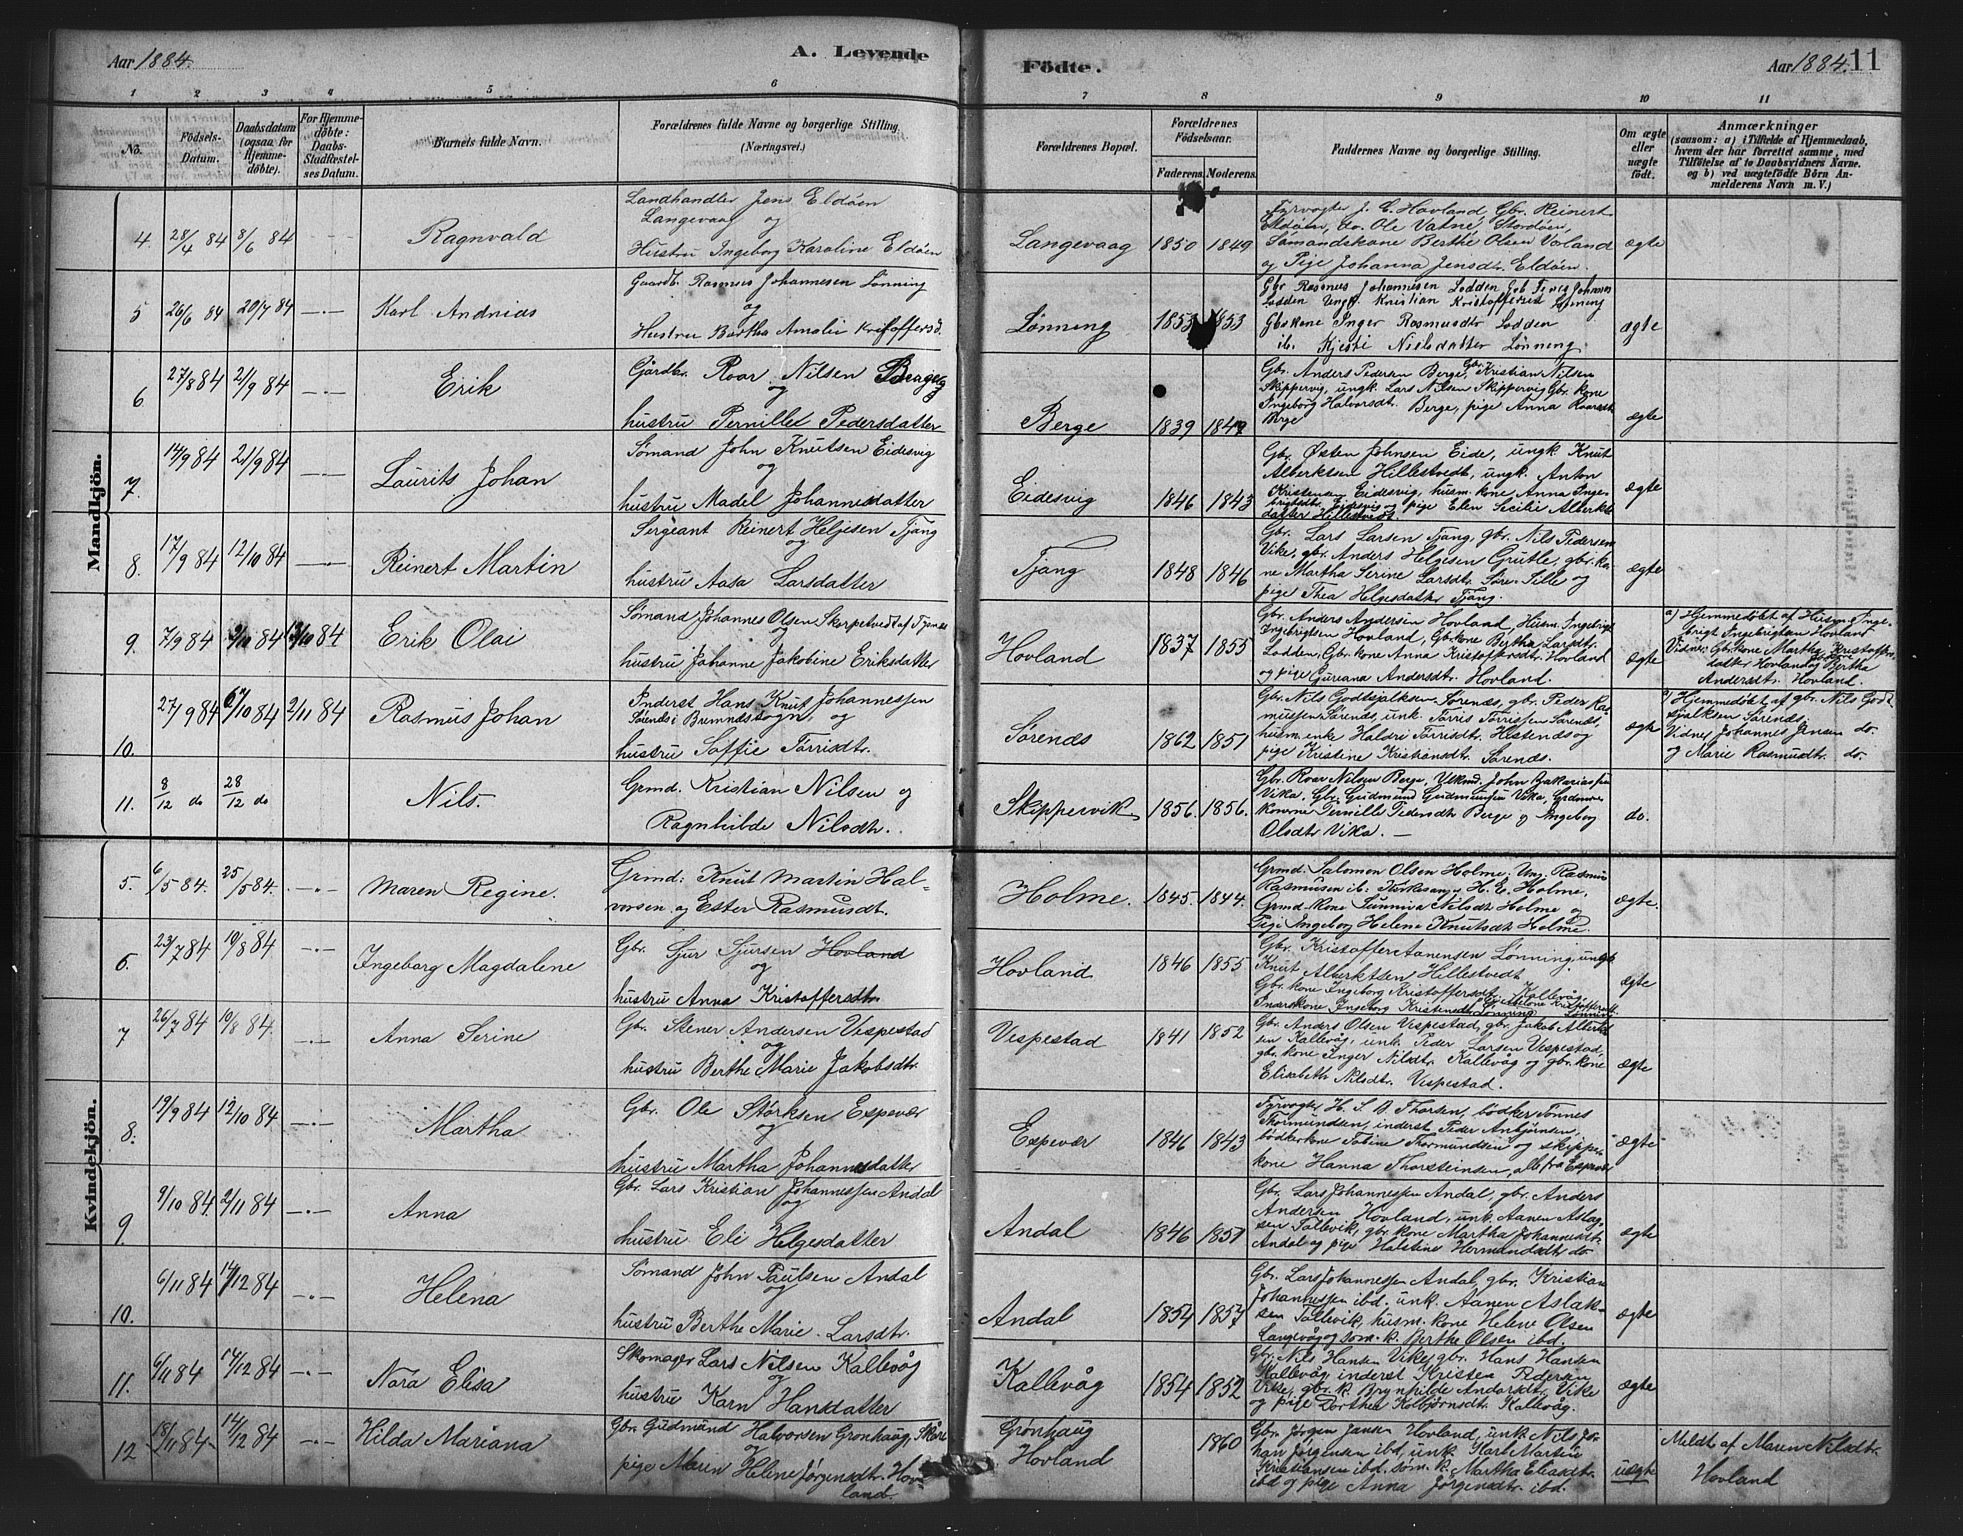 Aar 1884.
A. Levende
Födte.
Aar 1884. 11
1 2 3 4 5 6 7 8 9 10 11
No.
Födsels-
Datum.
Daabsdatum
(ogsaa for
Hjemme-
döbte).
For Hjemme-
döbte:
Daabs-
Stadfæstel-
ses Datum.
Barnets fulde Navn.
Forældrenes fulde Navne og borgerlige Stilling.
(Næringsvei.)
Forældrenes Bopæl.
Forældrenes
Födselsaar.
Faderens. Moderens.
Faddernes Navne og borgerlige Stilling.
Om ægte
eller
uægte
födt.
Anmærkninger
(saasom: a) i Tilfælde af Hjemmedaab,
hvem der har forrettet samme, med
Tilföielse af to Daabsvidners Navne.
og b) ved uægtefödte Börn An-
melderens Navn m. V.)
Mandkjön.
4 28/4 84 8/6 84 Ragnvald
Landhandler Jens Eldøen
Langevaag og
Hustru Ingeborg Karoline Eldøen
Langevaag 1850 1849
Fyrvogter J. C. Hovland, Gbr. Reinert
Eldøen, do. Ole Vatne, Stordøen,
Sømandskone Berthe Olsen Vorland
og Pige Johanna Jensdr. Eldøen.
ægte
5 26/6 84 20/7 84 Karl Andrias
Gaardb. Rasmus Johannesen Lønning
og
Hustru Bertha Amalie Kristoffersd.
Lønning 1853 1853
Gbr Rasmus Johannesen Lodden
Lodden Ungk. Kristian Kristoffersen Lønning
Gbrkone Inger Rasmusdtr Lodden
Nielsdatter Lønning
ægte
6 27/8 84 21/9 84 Erik
Gårdbr. Roar Nilsen Berge
og
hustru Pernille Pedersdatter
Berge 1839 1849
Gbr. Anders Pedersen Berge, Gbr. Kristian Nilsen
Skippervig, ungk. Lars Nilsen Skippervig Gbr. kone
Ingeborg Halvorsdt. Berge, pige Anna Roarsdt.
Berge
ægte
7 14/9 84 21/9 84 Laurits Johan
Sømand John Knutsen Eidesvig
og
hustru Madel Johannesdatter
Eidesvig 1846 1843
Gbr. Østen Johnsen Eide, ungk Knut
Alberktsen Hillestvedt, ungk. Anton
Kristensen Eidesvig, husm. kone Anna Inge-
brigtsdtr. Eidesvig og pige Elen Secilie Alberkts-
datter Hillestvedt
ægte
8. 17/9 84 12/10 84 Reinert Martin
Sergeant Reinert Helgesen Tjang
og
hustru Aasa Larsdatter
Tjang 1848 1846
Gbr. Lars Larsen Tjang, gbr. Nils Pedersen
Vike, gbr. Anders Helgesen Grutle, gbr. ko-
ne Martha Serine Larsdt. Søre-Sille og
pige Thea Helgesdatter Tjang.
ægte
9. 7/9 84 9/10 84 13/10 84 Erik Olai
Sømand Johannes Olsen Skarpetvedt af Tysnæs
og
hustru Johanne Jakobine Eriksdatter
Hovland 1837 1855
Gbr. Anders Andersen Hovland, Husm. Ingebrigt
Ingebrigtsen Hovland, Gbrkone Bertha Larsdt.
Lodden, Gbr. kone Anna Kristoffersdt. Hovland
og pige Guriana Andersdt. Hovland.
ægte
a) Hjemmedøbt af Husm. Inge-
brigt Ingebrigtsen Hovland
Vidner: Gbrkone Martha Kristoffers-
datter Hovland og Bertha
Andersdt. Hovland.
10. 27/9 84 6/10 84 2/11 84 Rasmus Johan
Inderst Hans Knut Johannessen
Sørends i Bremnes sogn, og
hustru Soffie Torrisdt.
Sørends 1862 1851
Gbr. Nils Godskjalksen Sørends, gbr. Peder Ras-
mussen Sørends, unk Torris Torrissen Sørends,
husm. enke Haldri Torrisdt. Hestends og
pige Kristine Kristiansdt. Sørends.
ægte
a) Hjemmedøbt af gbr. Nils Gods-
kjalksen Sørends.
Vidner Johannes Jensen do.
og Marie Rasmusdt. do.
11. 8/12 do 28/12 do Nils.
Grmd. Kristian Nilsen og
Ragnhilde Nilsdtr.
Skippervik 1856. 1856.
Gbr. Roar Nilsen Berge, John Zakariassen
Vika, Gbr. Gudmund Gudmunsen Vika, Grdmds-
konerne Pernille Pedersdt Berge og Ingeborg
Olsdtr Vika. —
do.
Kvindekjön.
5. 6/5 84. 25/5 84. Maren Regine.
Grmd: Knut Martin Hal-
vorsen og Ester Rasmusdt.
Holme. 1845. 1844.
Grmd. Salomon Olsen Holme. Ung. Rasmus
Rasmusen ib. Kirkesang. H. E. Holme,
Grmd-kone Sunniva Nilsdt Holme og
Pige Ingeborg Helene Knutsdt Holme
ægte.
6. 23/7 84 10/8 84 Ingeborg Magdalene
Gbr. Sjur Sjursen Hovland
og
hustru Anna Kristoffersdtr.
Hovland 1846 1855
Gbr. Kristoffer Aanensen Lønning, ungk
Knut Alberktsen Hillestvedt
Gbr. kone Ingeborg Kristoffersdt. Kallevåg
Inderstkone Ingeborg Kristensdt. Lønning
ægte
7 26/7 84 10/8 84. Anna Serine
Gbr. Stener Andersen Vespestad
og
hustru Berthe Marie Jakobsdtr.
Vespestad 1841 1852
Gbr. Anders Olsen Vespestad, gbr. Jakob Alberkt-
sen Kallevåg, unk Peder Larsen Vespestad,
gbr. kone Inger Nilsdt. Kallevåg og gbr. kone
Elisabeth Nilsdt. Vespestad.
ægte
8. 19/9 84 12/10 84 Martha
Gbr. Ole Størksen Espevær
og
hustru Martha Johannesdatter
Espevær 1846 1843
Fyrvogter H. S. B Thorsen, bødker Tønnes
Thormundsen, inderst Peder Anbjørnsen,
bødkerkone Tobine Thormundsen og skipper-
kone Hanna Thorsteinsen, alle fra Espevær
ægte
9. 9/10 84. 2/11 84 Anna
Gbr. Lars Kristian Johannessen Andal
og
hustru Eli Helgesdatter
Andal 1846 1851
Gbr. Lars Johannessen Andal, gbr. Anders
Andersen Hovland, unk. Aanen Aslag-
sen Tollevik, gbr. kone Martha Johannesdt.
Andal og pige Halstine Hermundsdt. do
ægte
10. 6/11 84 14/12 84 Helena
Sømand John Paulsen Andal
og
hustru Berthe Marie Larsdtr.
Andal 1854 1857
Gbr. Lars Johannessen Andal, gbr. Kristian
Johannessen ibd. unk. Aanen Aslak-
sen Tollevik, husm. kone Helene Olsen
Langevåg og søm. k. Berthe Olsen ibd.
ægte
11. 6/11 84 14/12 84 Nora Elisa
Skomager Lars Nilsen Kallevåg
og
hustru Karn Hansdatter
Kallevåg 1854 1852
Gbr. Nils Hansen Vike, gbr. Hans Hansen
Kallevåg, inderst Kristen Pedersen
Vike, gbr. k. Brynhilde Andersdt. Vike
og pige Dorthea Kolbjørnsdt. Kallevåg.
ægte
12 18/11 84 14/12 84 Hilda Mariana
Gbr. Gudmund Halvorsen Grønhaug, Skåre
og
pige Maren Helene Jørgensdt. Hov-
land.
Grønhaug
Hovland 1860
Gbr. Jørgen Jansen Hovland, unk Nils Jo-
han Jørgensen ibd, unk. Karl Martin
Kristiansen ibd. søm. k. Martha Eliasdt.
ibd og pige Anna Jørgensdt. ibd.
uægte
Meldt af Maren Nilsdt.
Hovland